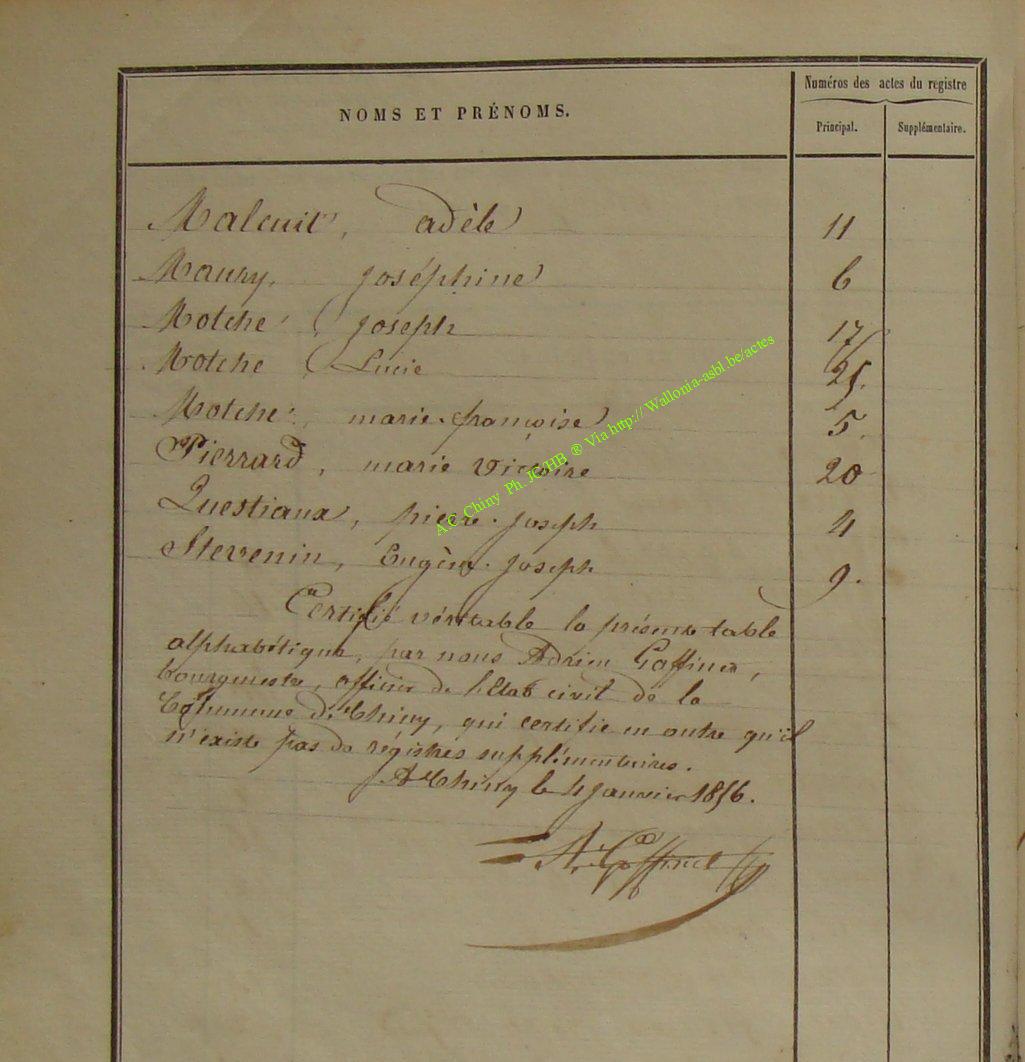 NOMS ET PRÉNOMS.
Numéros des actes du registre
Principal.
Supplémentaire.
Malcuit, adèle 11
Maury, Joséphine 6
Motché, Joseph 17
Motche, Lucie 25.
Motché, marie-françoise 5.
Pierrard, marie Victoire 20
Questiaux, pierre-Joseph 4
Stevenin, Eugène-Joseph 9.
Certifié véritable la présente table
alphabétique, par nous Adrien Goffinet,
bourgmestre, officier de l'Etat civil de la
Commune de Chiny, qui certifie en outre qu'il
n'existe pas de régistres supplémentaires.
A Chiny le 4 Janvier 1856.
A. Goffinet
A.C. Chiny Ph. JC/HB ® Via http:// Wallonia-asbl.be/actes